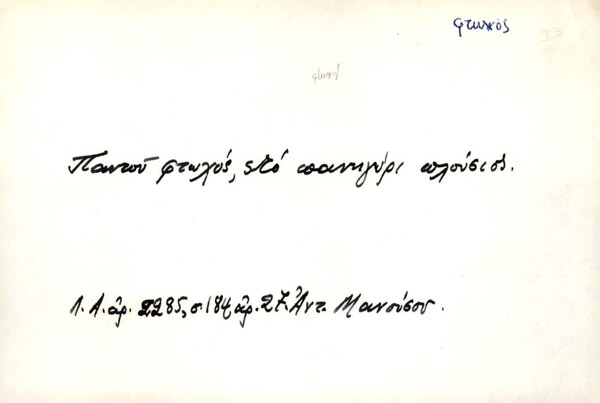 φτωχός
φτωχ
Παντοῦ φτωχός, στό πανηγύρι πλούσιος.
Λ. Α. ἀρ. 2285, σ. 184, ἀρ. 27. Ἀντ. Μανούσου.